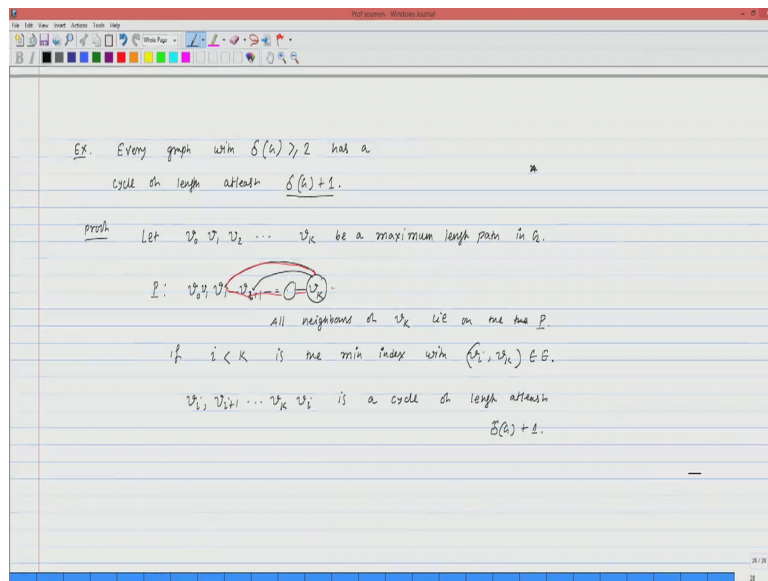 Prof soumen - Windows Journal
File Edit View Insert Actions Tools Help
Whole Page
B I
Ex. Every graph with δ(G) ≥ 2 has a
cycle of length atleast δ(G) + 1.
proof Let v₀ v₁ v₂ ... vₖ be a maximum length path in G.
P: v₀ v₁ vᵢ vᵢ₊₁ - - vₖ.
All neighbours of vₖ lie on the the P.
If i < k is the min index with (vᵢ, vₖ) ∈ E.
vᵢ, vᵢ₊₁ ... vₖ vᵢ is a cycle of length atleast
δ(G) + 1.
28 / 28
28